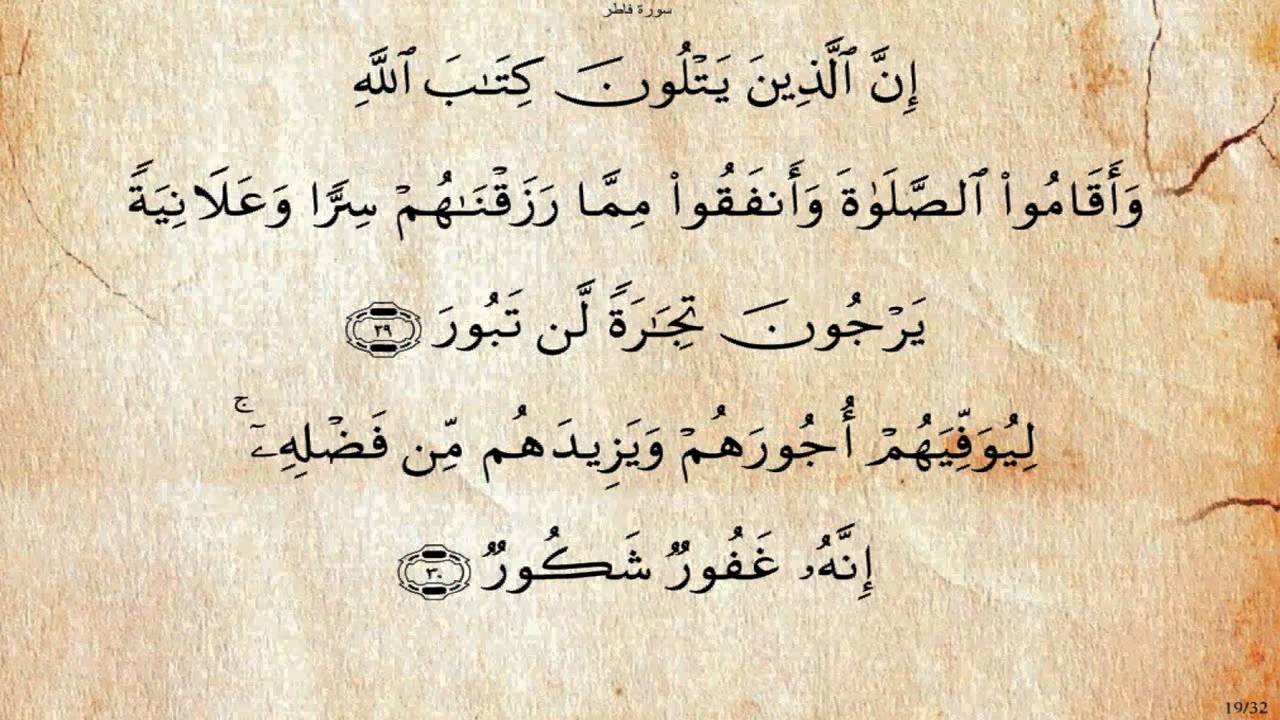 سورة فاطر
إِنَّ ٱلَّذِينَ يَتْلُونَ كِتَـٰبَ ٱللَّهِ
وَأَقَامُوا۟ ٱلصَّلَوٰةَ وَأَنفَقُوا۟ مِمَّا رَزَقْنَـٰهُمْ سِرًّا وَعَلَانِيَةً
يَرْجُونَ تِجَـٰرَةً لَّن تَبُورَ ٢٩
لِيُوَفِّيَهُمْ أُجُورَهُمْ وَيَزِيدَهُم مِّن فَضْلِهِۦٓ ۚ
إِنَّهُۥ غَفُورٌ شَكُورٌ ٣٠
19/32